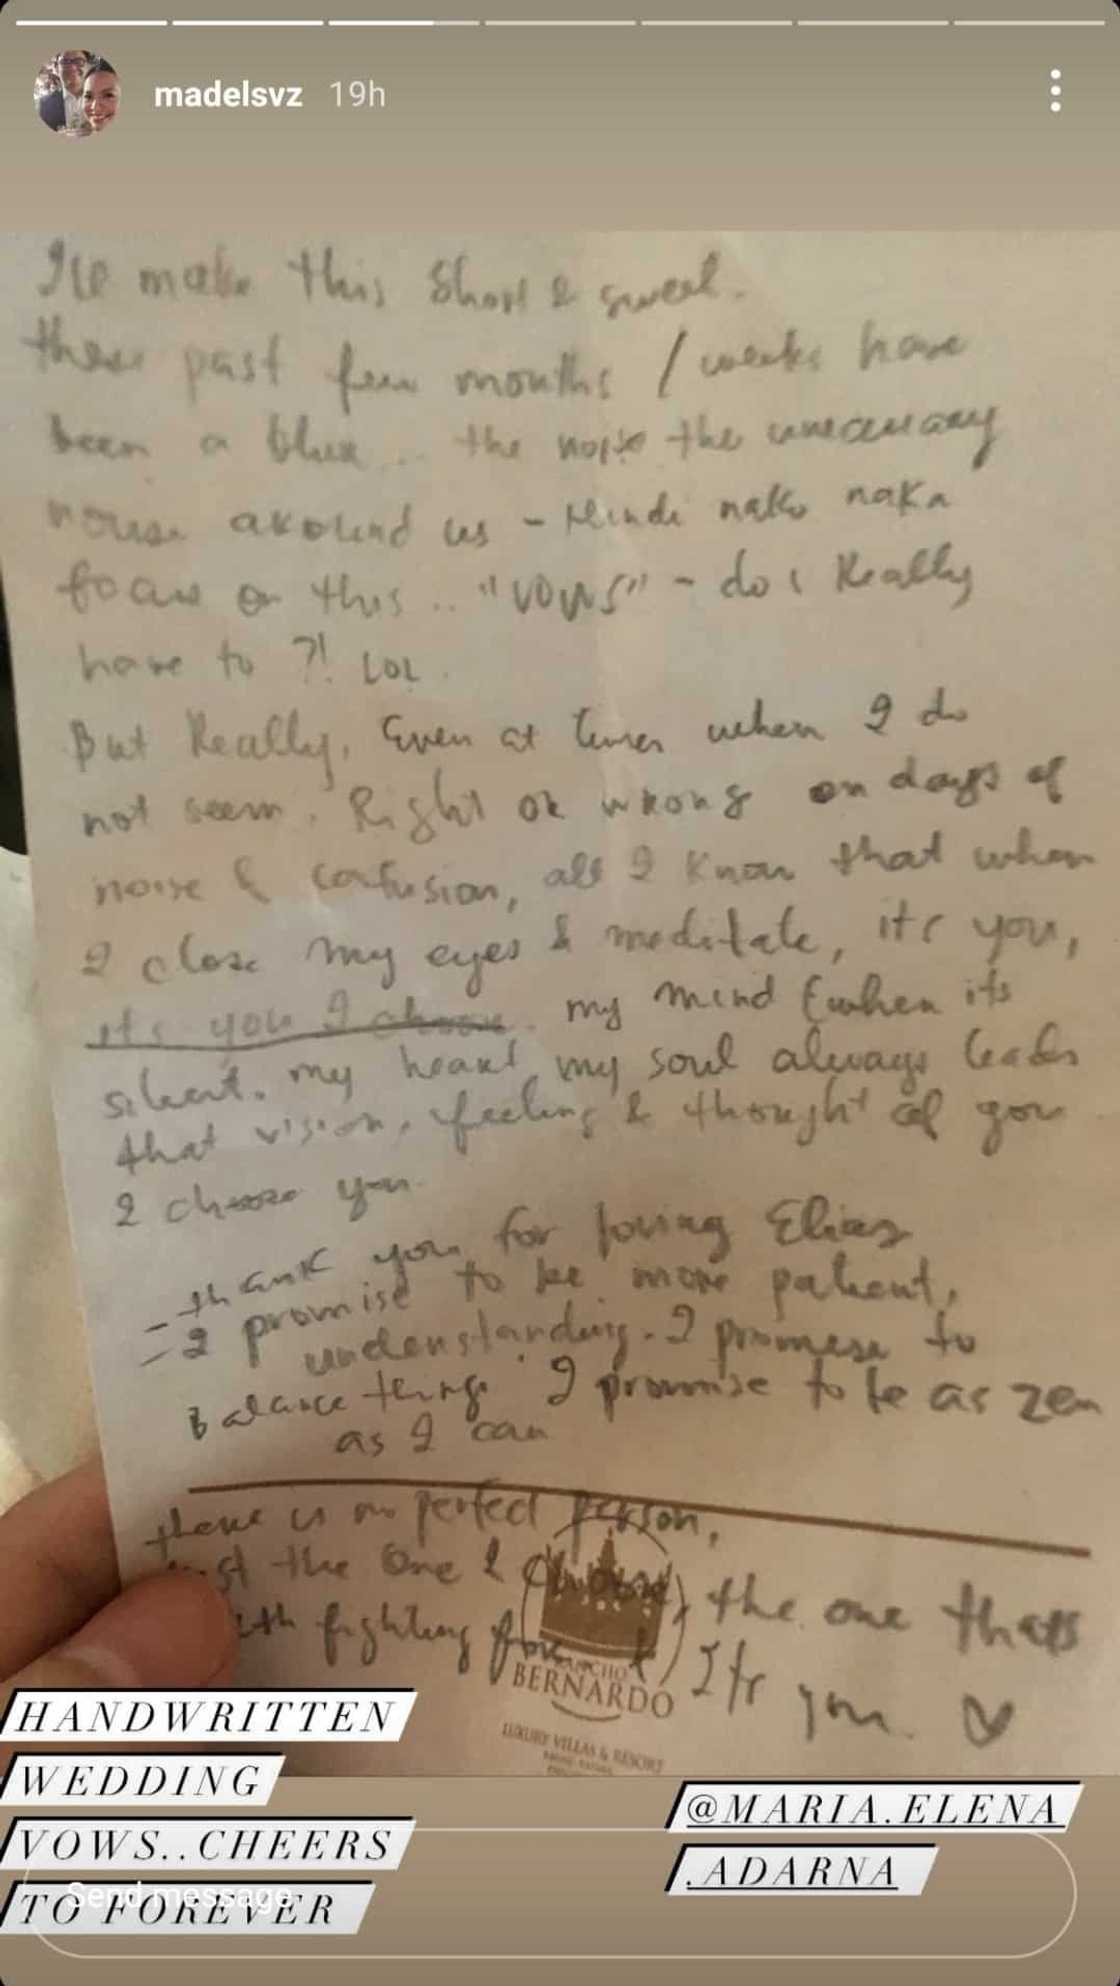 madelsvz 19h
I'll make this short & sweet.
these past few months / weeks have
been a blur... the noise the unnecessary
noise around us - Hindi nako naka
focus on this.. "vows" - do i Really
have to ?! LOL
But Really, Even at times when I do
not seem. Right or wrong on days of
noise & confusion, all I know that when
I close my eyes & meditate, its you,
its you I choose. my mind (when its
silent. my heart, my soul always leads
that vision, feeling & thought of you
I choose you.
- thank you for loving Elias
- I promise to be more patient,
understanding. I promise to
Balance things. I promise to be as zen
as I can
there is no perfect person,
just the one I the one thats
fighting for Its you. ♡
RANCHO
BERNARDO
LUXURY VILLAS & RESORT
HANDWRITTEN
WEDDING
VOWS..CHEERS
TO FOREVER
@MARIA.ELENA
.ADARNA
Send message